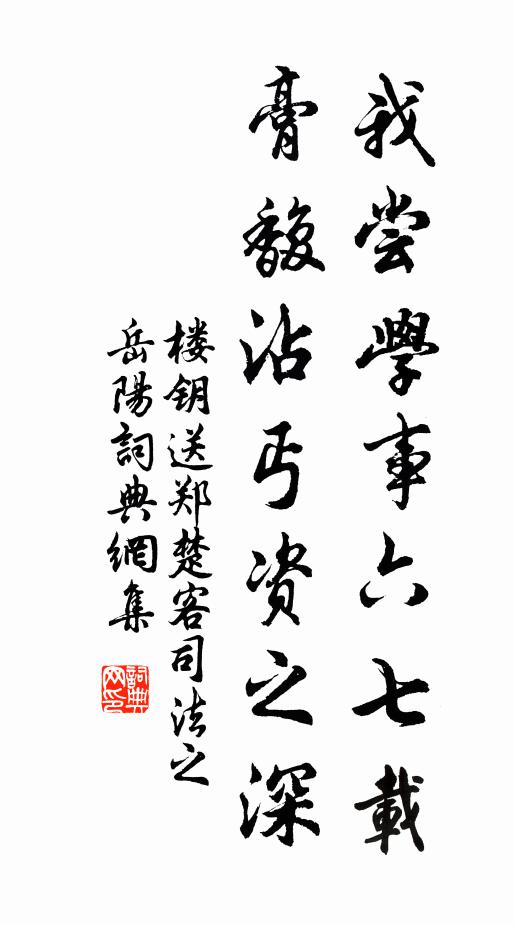 我尝學事六七載
膏馥沾丐资之深
楼钥送郑楚客司法之
岳陽詞典網集
詞典網印